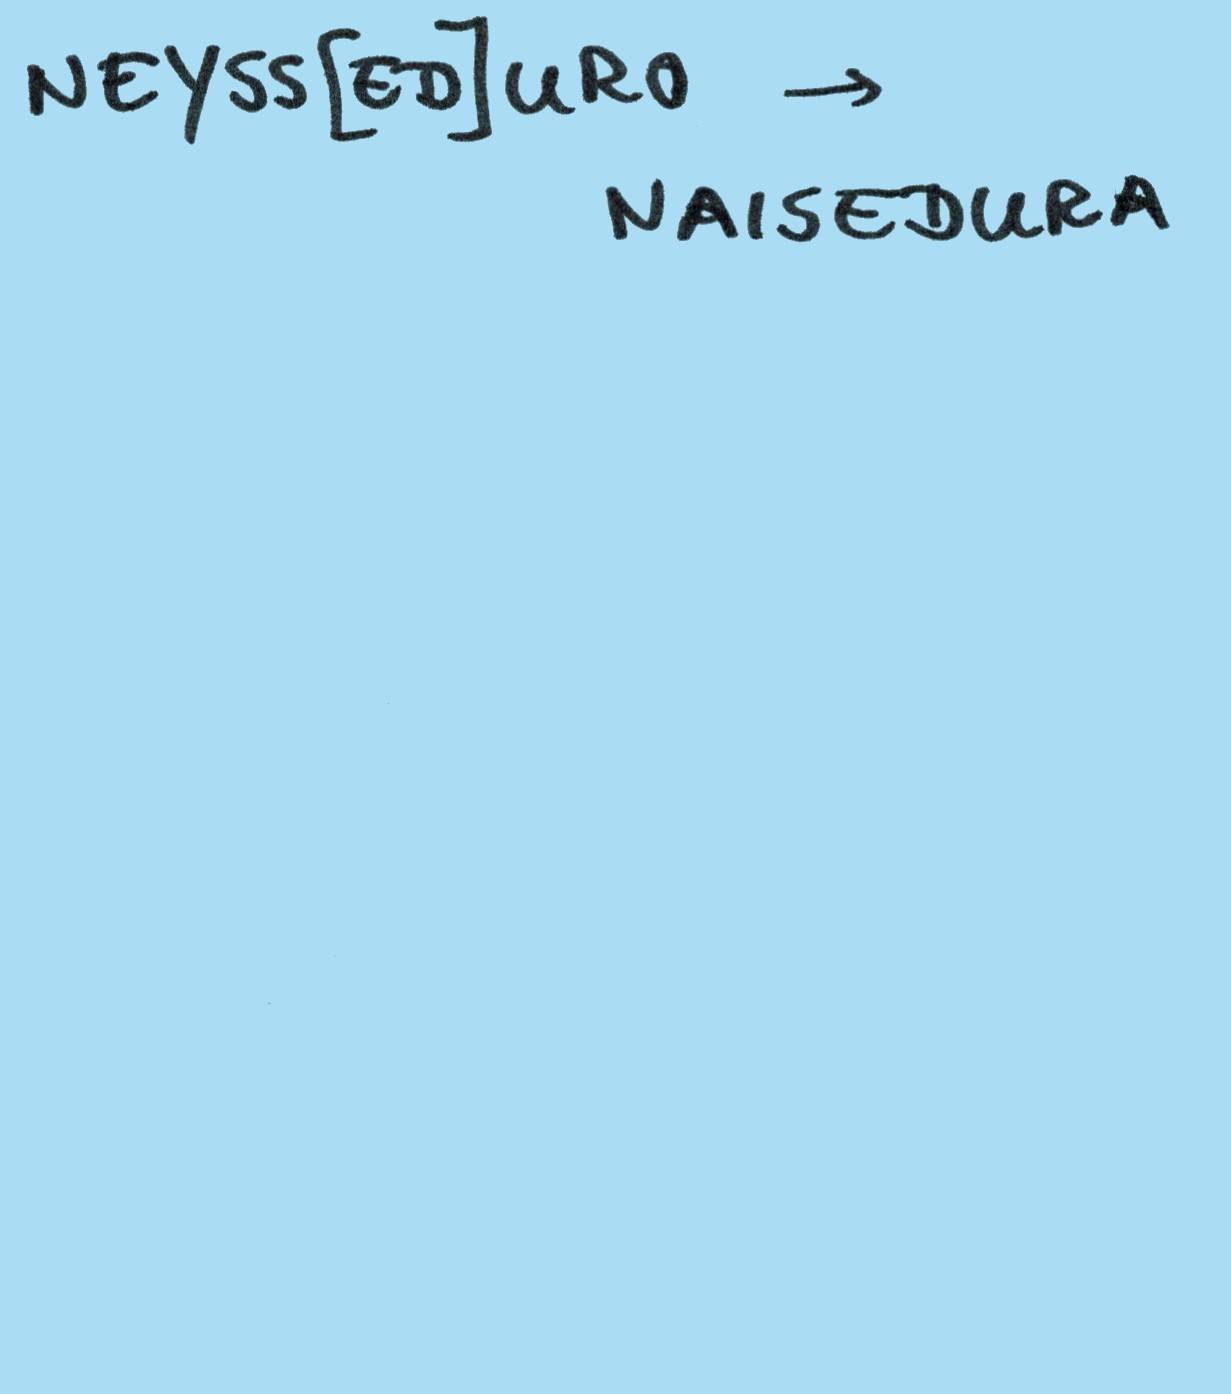 NEYSS[ED]URO →
NAISEDURA